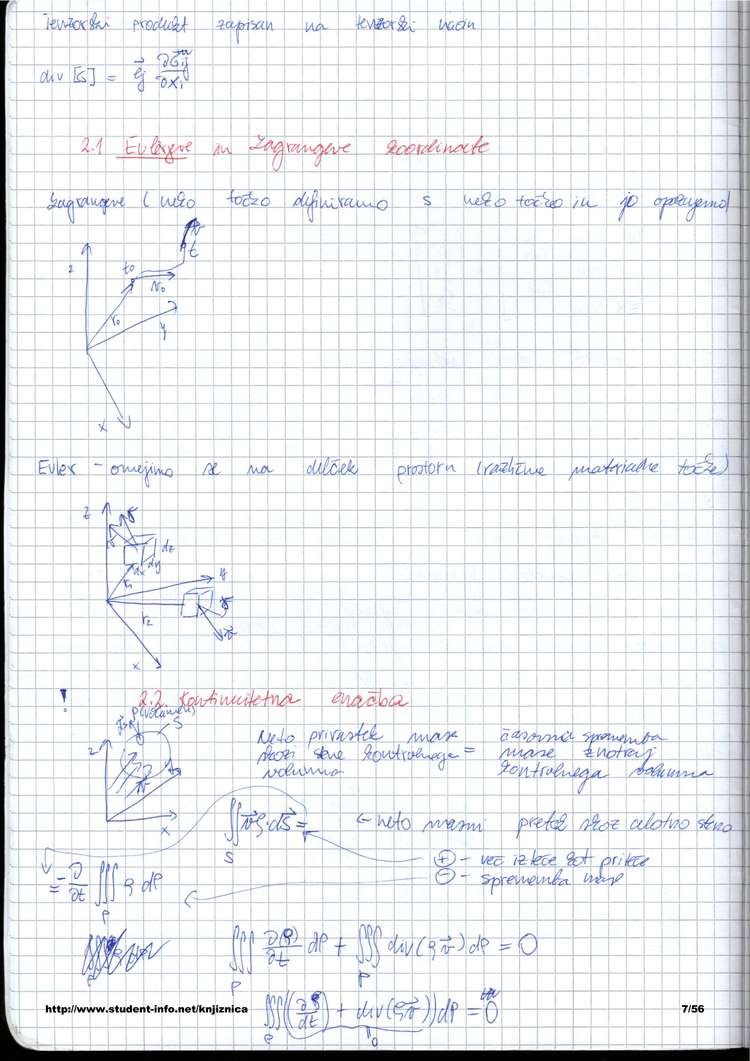 Tenzorski produkt zapisan na tenzorski način
div [σ] = e⃗j ∂σij/∂xi
2.1 Eulerjeve in Lagrangeve koordinate
Lagrangeve ( neko točko definiramo s neko točko in jo opazujemo)
z t0 v0 v t
r0 y
x
Euler - omejimo se na delček prostora (različne materialne točke)
z v dz
dx dy
r1 y
r2 v
x
! 2.2. Kontinuitetna enačba
P(volumen) S
z
v
x
Neto prirastek mase = časovna sprememba
skozi stene kontrolnega mase znotraj
volumna kontrolnega volumna
∬S v⃗ρ·dS⃗ = ← neto masni pretok skoz celotno steno
⊕ - več izteče kot priteče
⊖ - sprememba mase
= -∂/∂t ∭P ρ dP
∭P ∂(ρ)/∂t dP + ∭P div(ρv⃗)dP = 0
∭P (∂ρ/∂t + div(ρv⃗))dP = 0
0
http://www.student-info.net/knjiznica 7/56